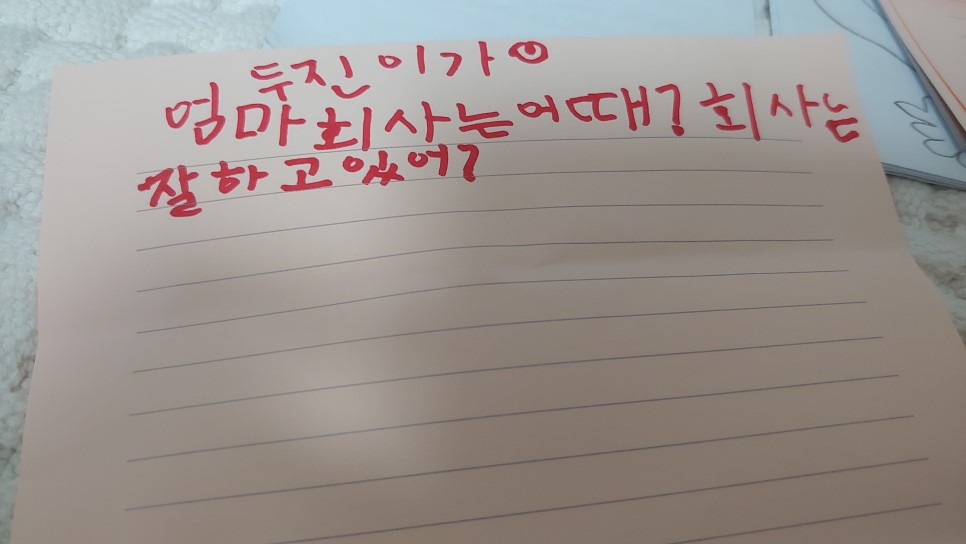 두진이가
엄마 회사는어때? 회사는
잘하고있어?